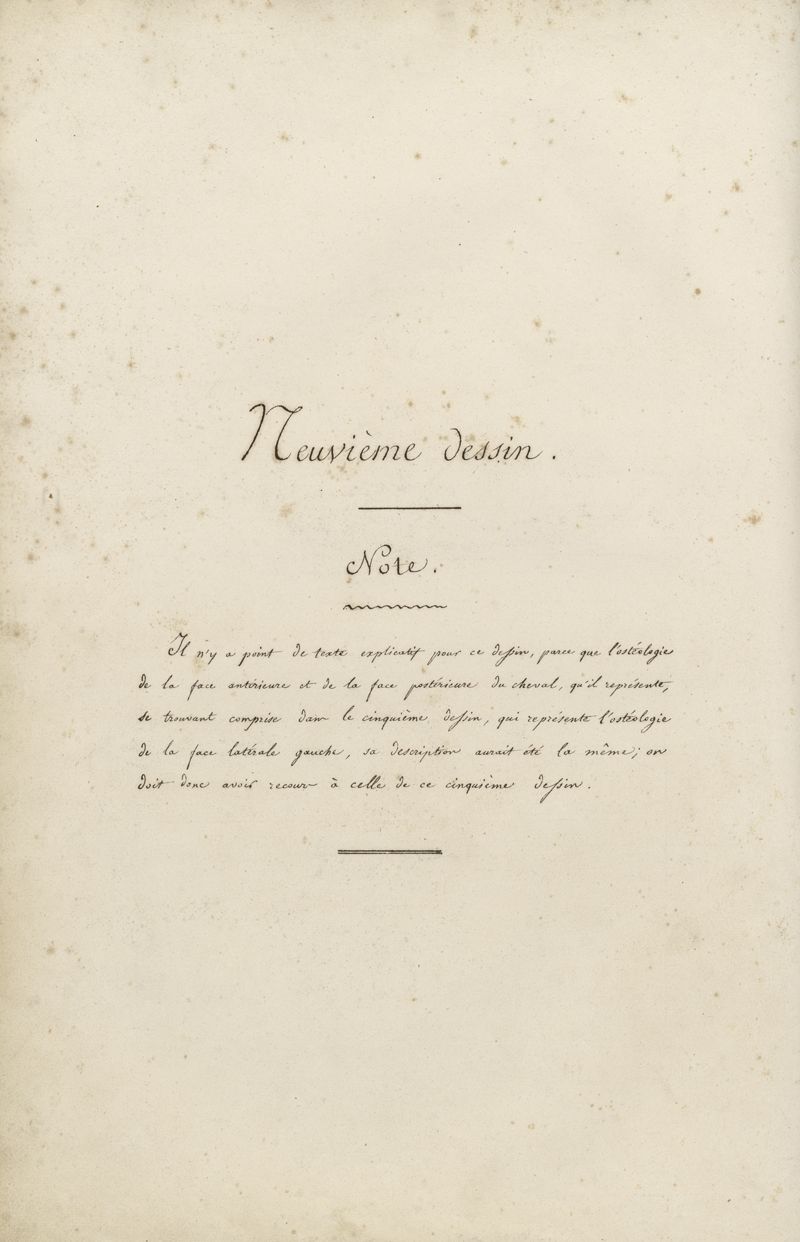 Neuvième dessin.
Note.
Il n'y a point de texte explicatif pour ce dessin, parce que l'ostéologie
de la face antérieure et de la face postérieure du cheval, qu'il représente,
se trouvant comprise dans le cinquième dessin, qui représente l'ostéologie
de la face latérale gauche, sa description aurait été la même; on
doit donc avoir recours à celle de ce cinquième dessin.